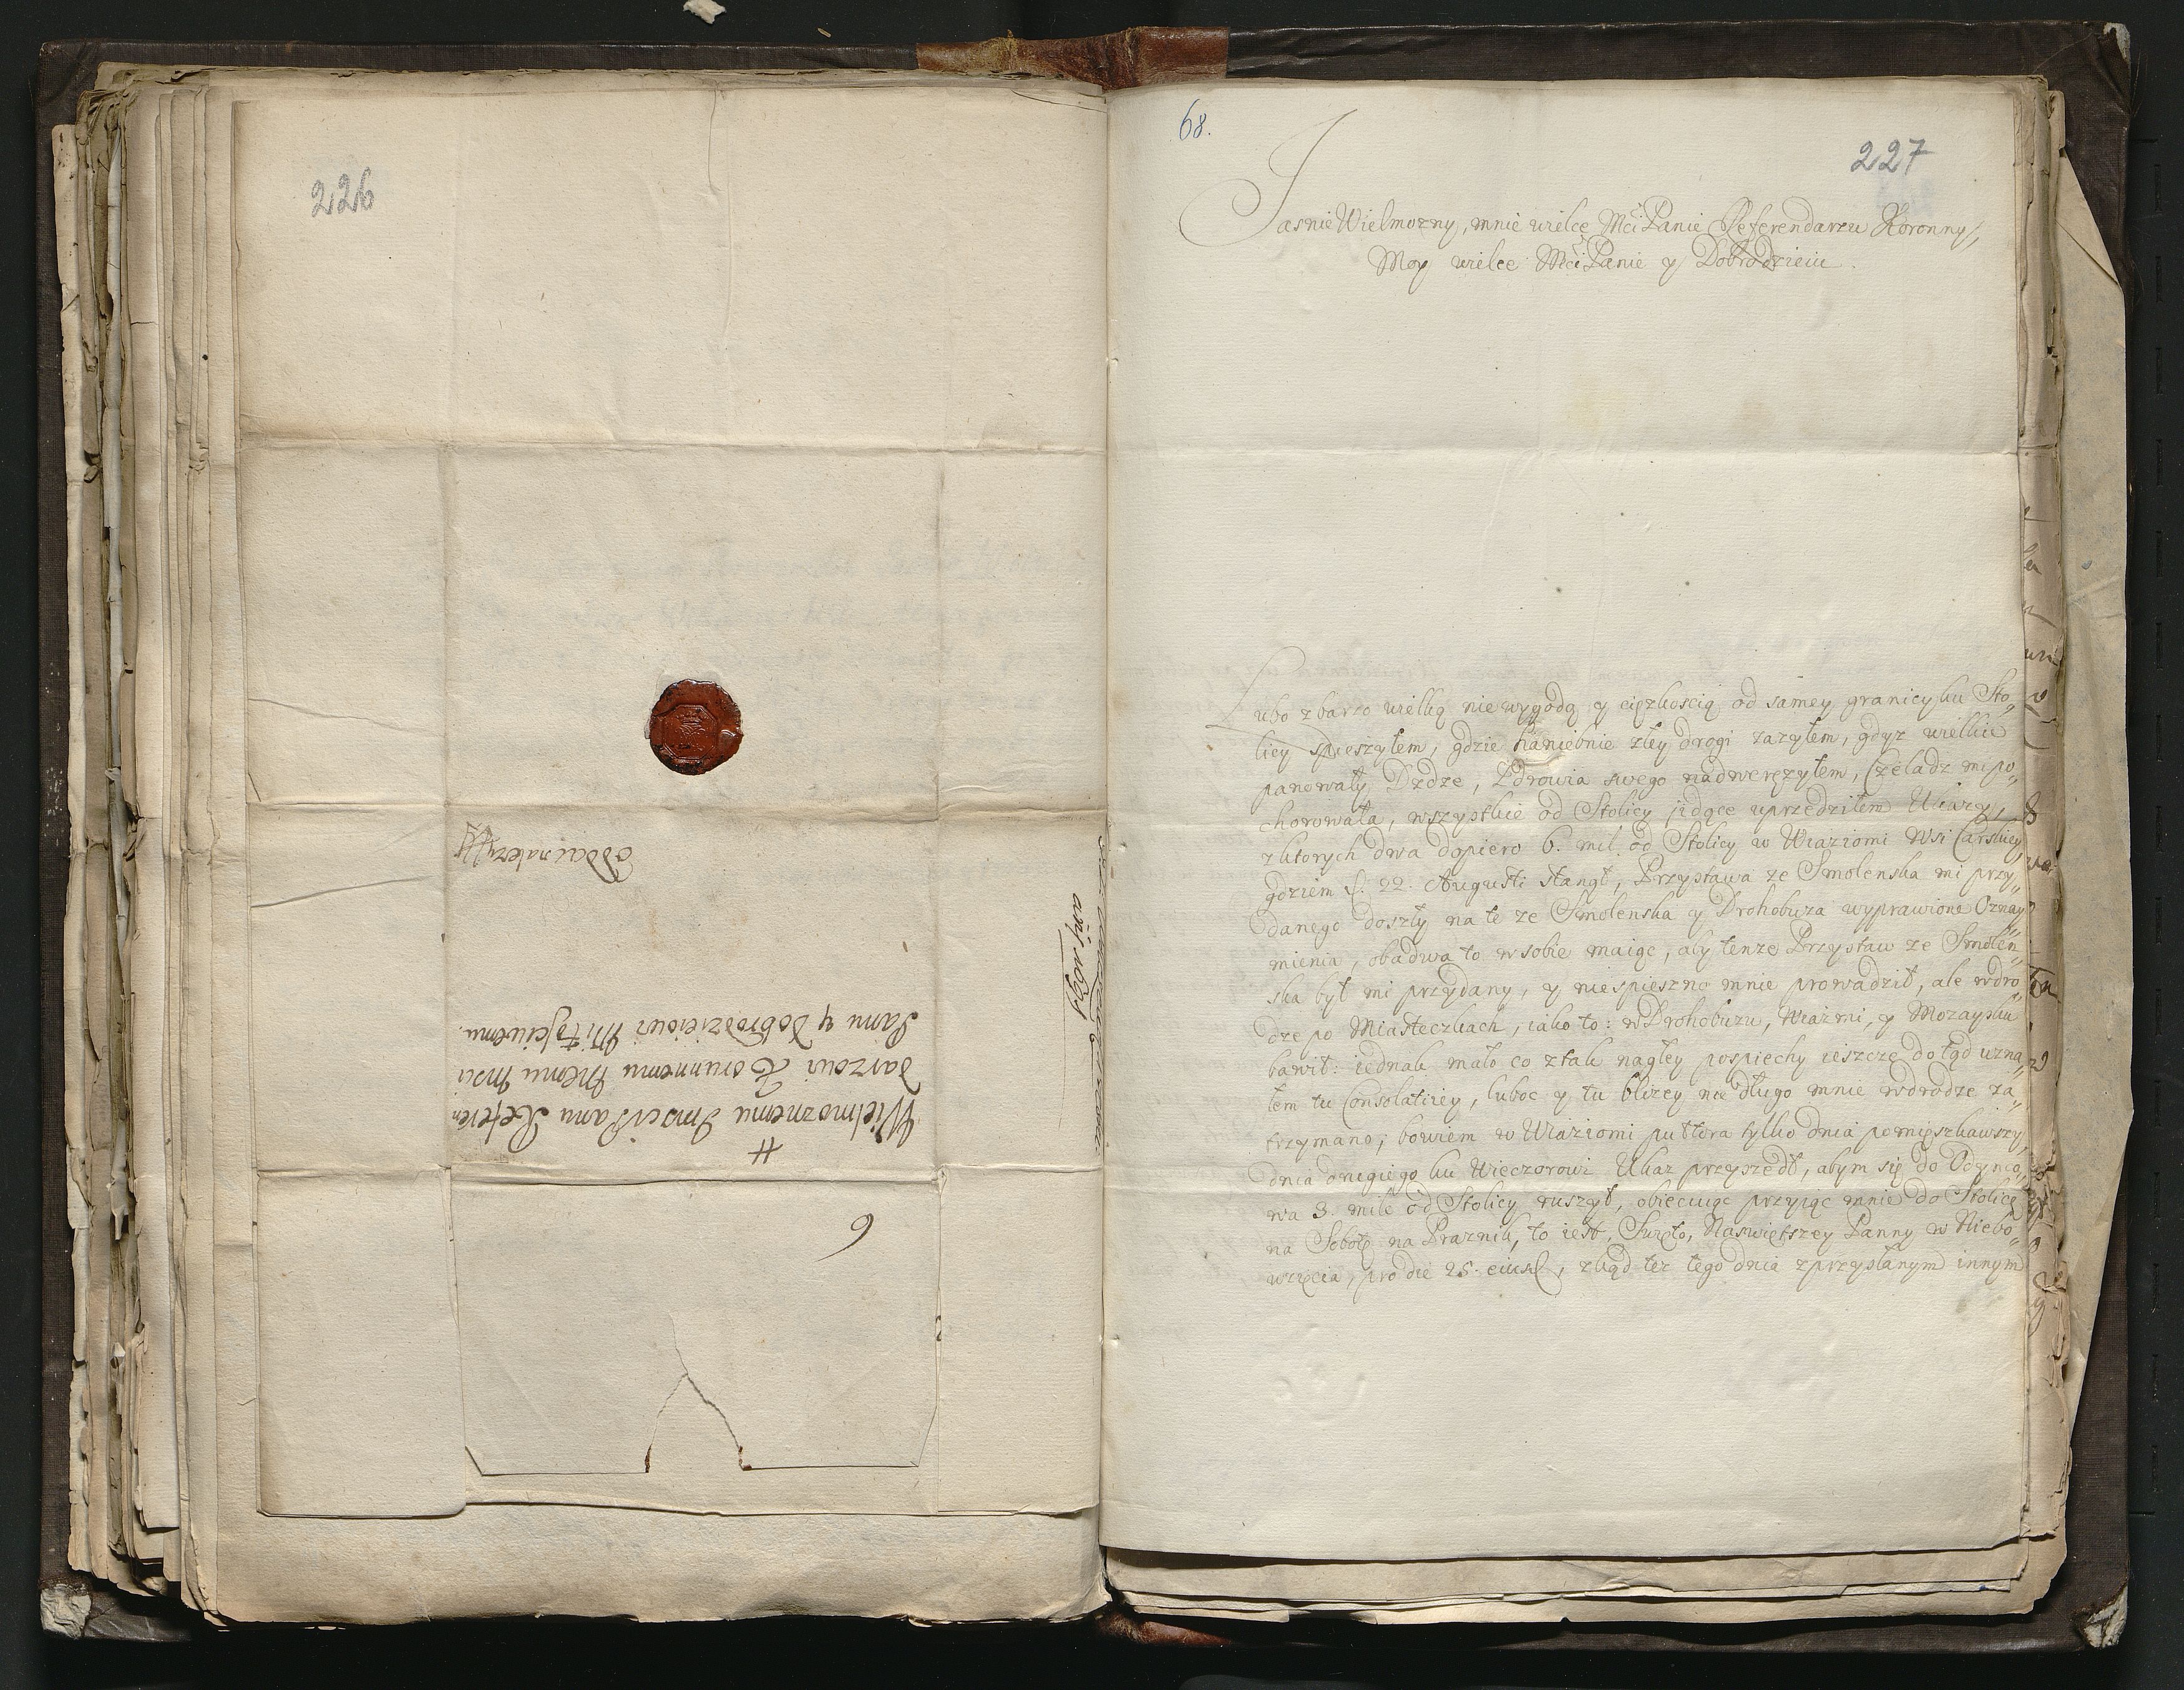 226
oddac należy
Wielmoznemu Jmsci Panu Referen
darzowi Koronnemu Memu Msci
Panu y Dobrodzieiowi Miłosciwemu.
6
68.
227
Jasnie Wielmozny, mnie wielce Mći Panie Referendarzu Koronny,
Moy wielce Mći Panie y Dobrodzieiu.
Lubo z barzo wielką niewygodą y cięzkoscią od samey granicy ku Sto„
licy spieszyłem, gdzie haniebnie złey drogi zazyłem, gdyz wielkie
panowały Dzdze, Zdrowia swego nadweręzyłem, Czeladz mi po„
chorowała, wszystkie od Stolicy idące uprzedziłem Ukazy,
z ktorych dwa dopiero 6. mil. od Stolicy w Wiaziomi Wsi Carskiey,
gdziem d. 22. Augusti stangł, Przystawa ze Smolenska mi przy„
danego doszły na te ze Smolenska y Drohobuza wyprawione Oznay„
mienia, obadwa to w sobie maiąc, aby tenze Przystaw ze Smolen„
ska był mi przydany, y niespieszno mnie prowadził, ale w dro„
dze po Miasteczkach, iako to: w Drohobuzu, Wiazmi, y Mozaysku
bawił: iednak mało co z tak nagłey pospiechy ieszcze dotąd uzna„
łem tu Consolatiey, luboc y tu blizey nie długo mnie w drodze za„
trzymano; bowiem w Wiaziomi pułtora tylko dnia pomięszkawszy,
dnia drugiego ku Wieczorowi Ukaz przyszedł, abym się do Odynco„
wa 3. mile od Stolicy ruszył, obiecuiąc przyiąc mnie do Stolice
na Sobotę na Praznik, to iest, Swięto, Naswiętszey Panny w Niebo„
wzięcia, pro die 25. eiusd, zkąd tez tego dnia z przysłanym innym